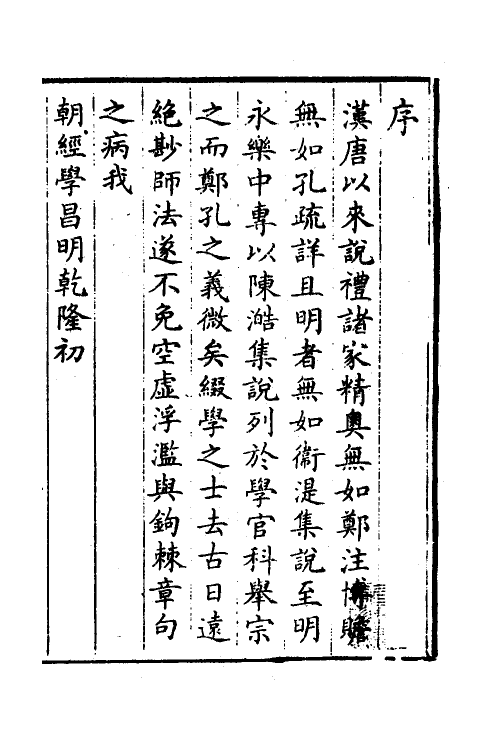 序
漢唐以來說禮諸家精奧無如鄭注博贍
無如孔疏詳且明者無如衞湜集說至明
永樂中專以陳澔集說列於學官科舉宗
之而鄭孔之義微矣綴學之士去古日遠
絕尠師法遂不免空虛浮濫與鉤棘章句
之病我
朝經學昌明乾隆初